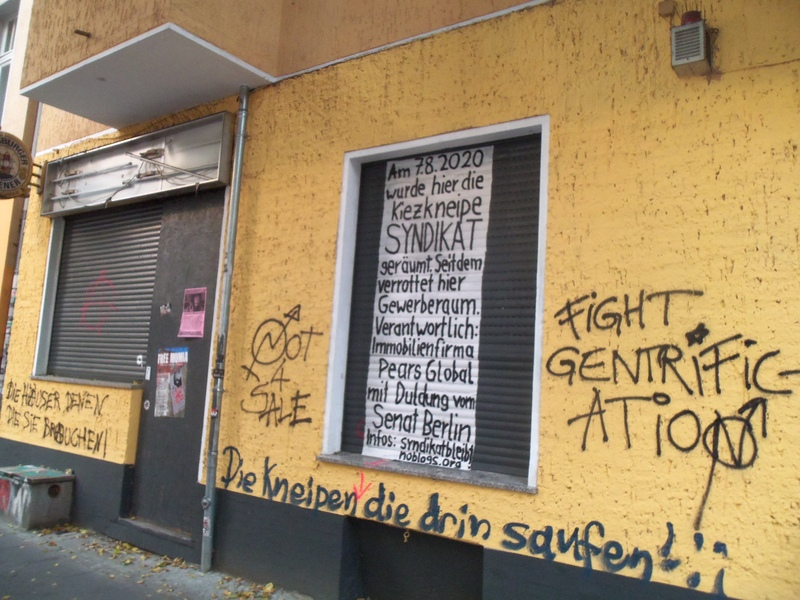 Am 7.8.2020
wurde hier die
Kiezkneipe
SYNDIKAT
geräumt. Seitdem
verrottet hier
Gewerberaum.
Verantwortlich:
Immobilienfirma
Pears Global
mit Duldung vom
Senat Berlin
Infos: syndikatbleibt
noblogs.org
FiGHT
GENTRiFiC-
ATiON
NOT
4
SALE
DIE HÄUSER DENEN
DIE SIE BRAUCHEN!
Die Kneipen die drin saufen!!
FREE